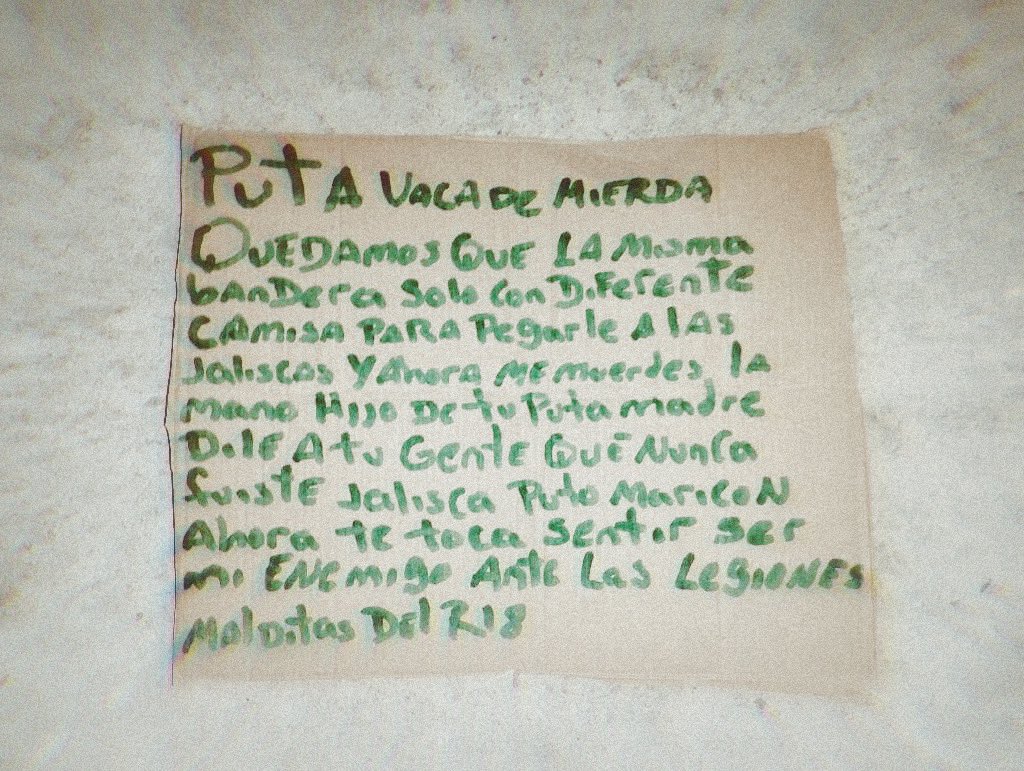 PUTA VACA DE MIERDA
QUEDAMOS QUE LA Misma
banDera Solo Con DiFerente
CAMISA PARA Pegarle A las
Jaliscas Y Ahora Me muerdes la
mano Hijo De tu Puta madre
DilE A tu Gente QuE Nunca
fuistE Jalisca Puto MaricoN
Ahora te toca Sentir Ser
mi ENemigo Ante Las LegiONES
Malditas Del R18